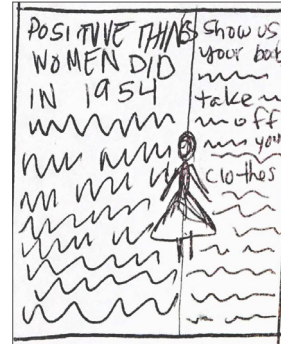 POSITIVE THINGS
WOMEN DID
IN 1954
Show us
your
take
off
you
clothes